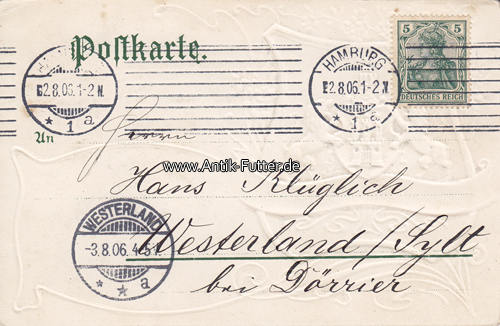 Postkarte.
HAMBURG
2.8.06.1-2N.
* 1 a
HAMBURG
2.8.06.1-2N.
* 1 a
5 5
DEUTSCHES REICH
An
Herrn
www.Antik-Futter.de
Hans Klüglich
Westerland/Sylt
bei Dörrier
WESTERLAND
-3.8.06. 4-5N.
* * a